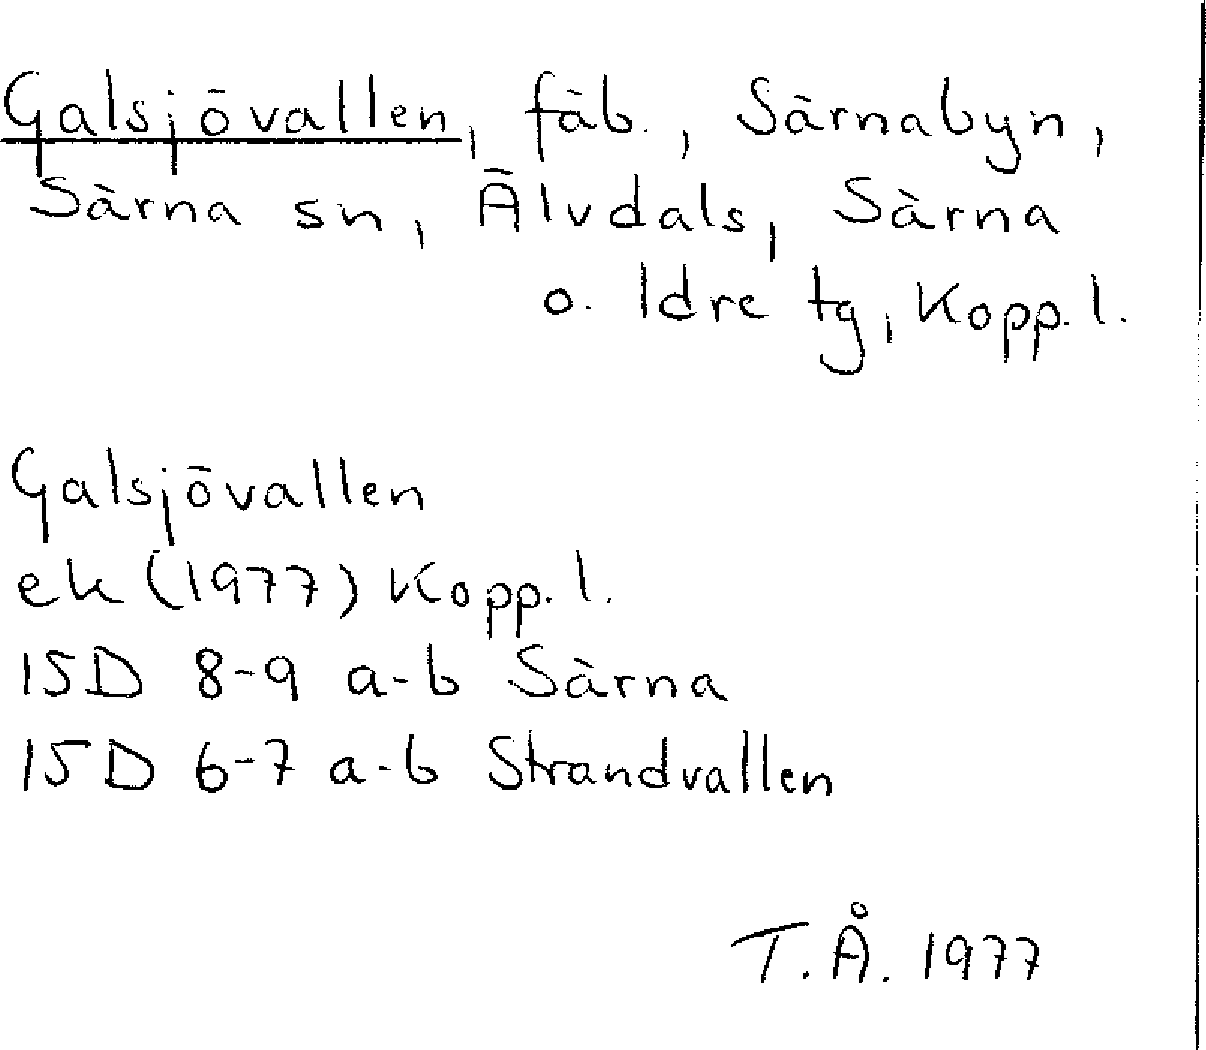 Galsjövallen, fäb., Särnabyn,
Särna sn, Älvdals, Särna
o. Idre tg, Kopp. l.
Galsjövallen
ek (1977) Kopp. l.
15D 8-9 a-b Särna
15D 6-7 a-b Strandvallen
T.Å. 1977